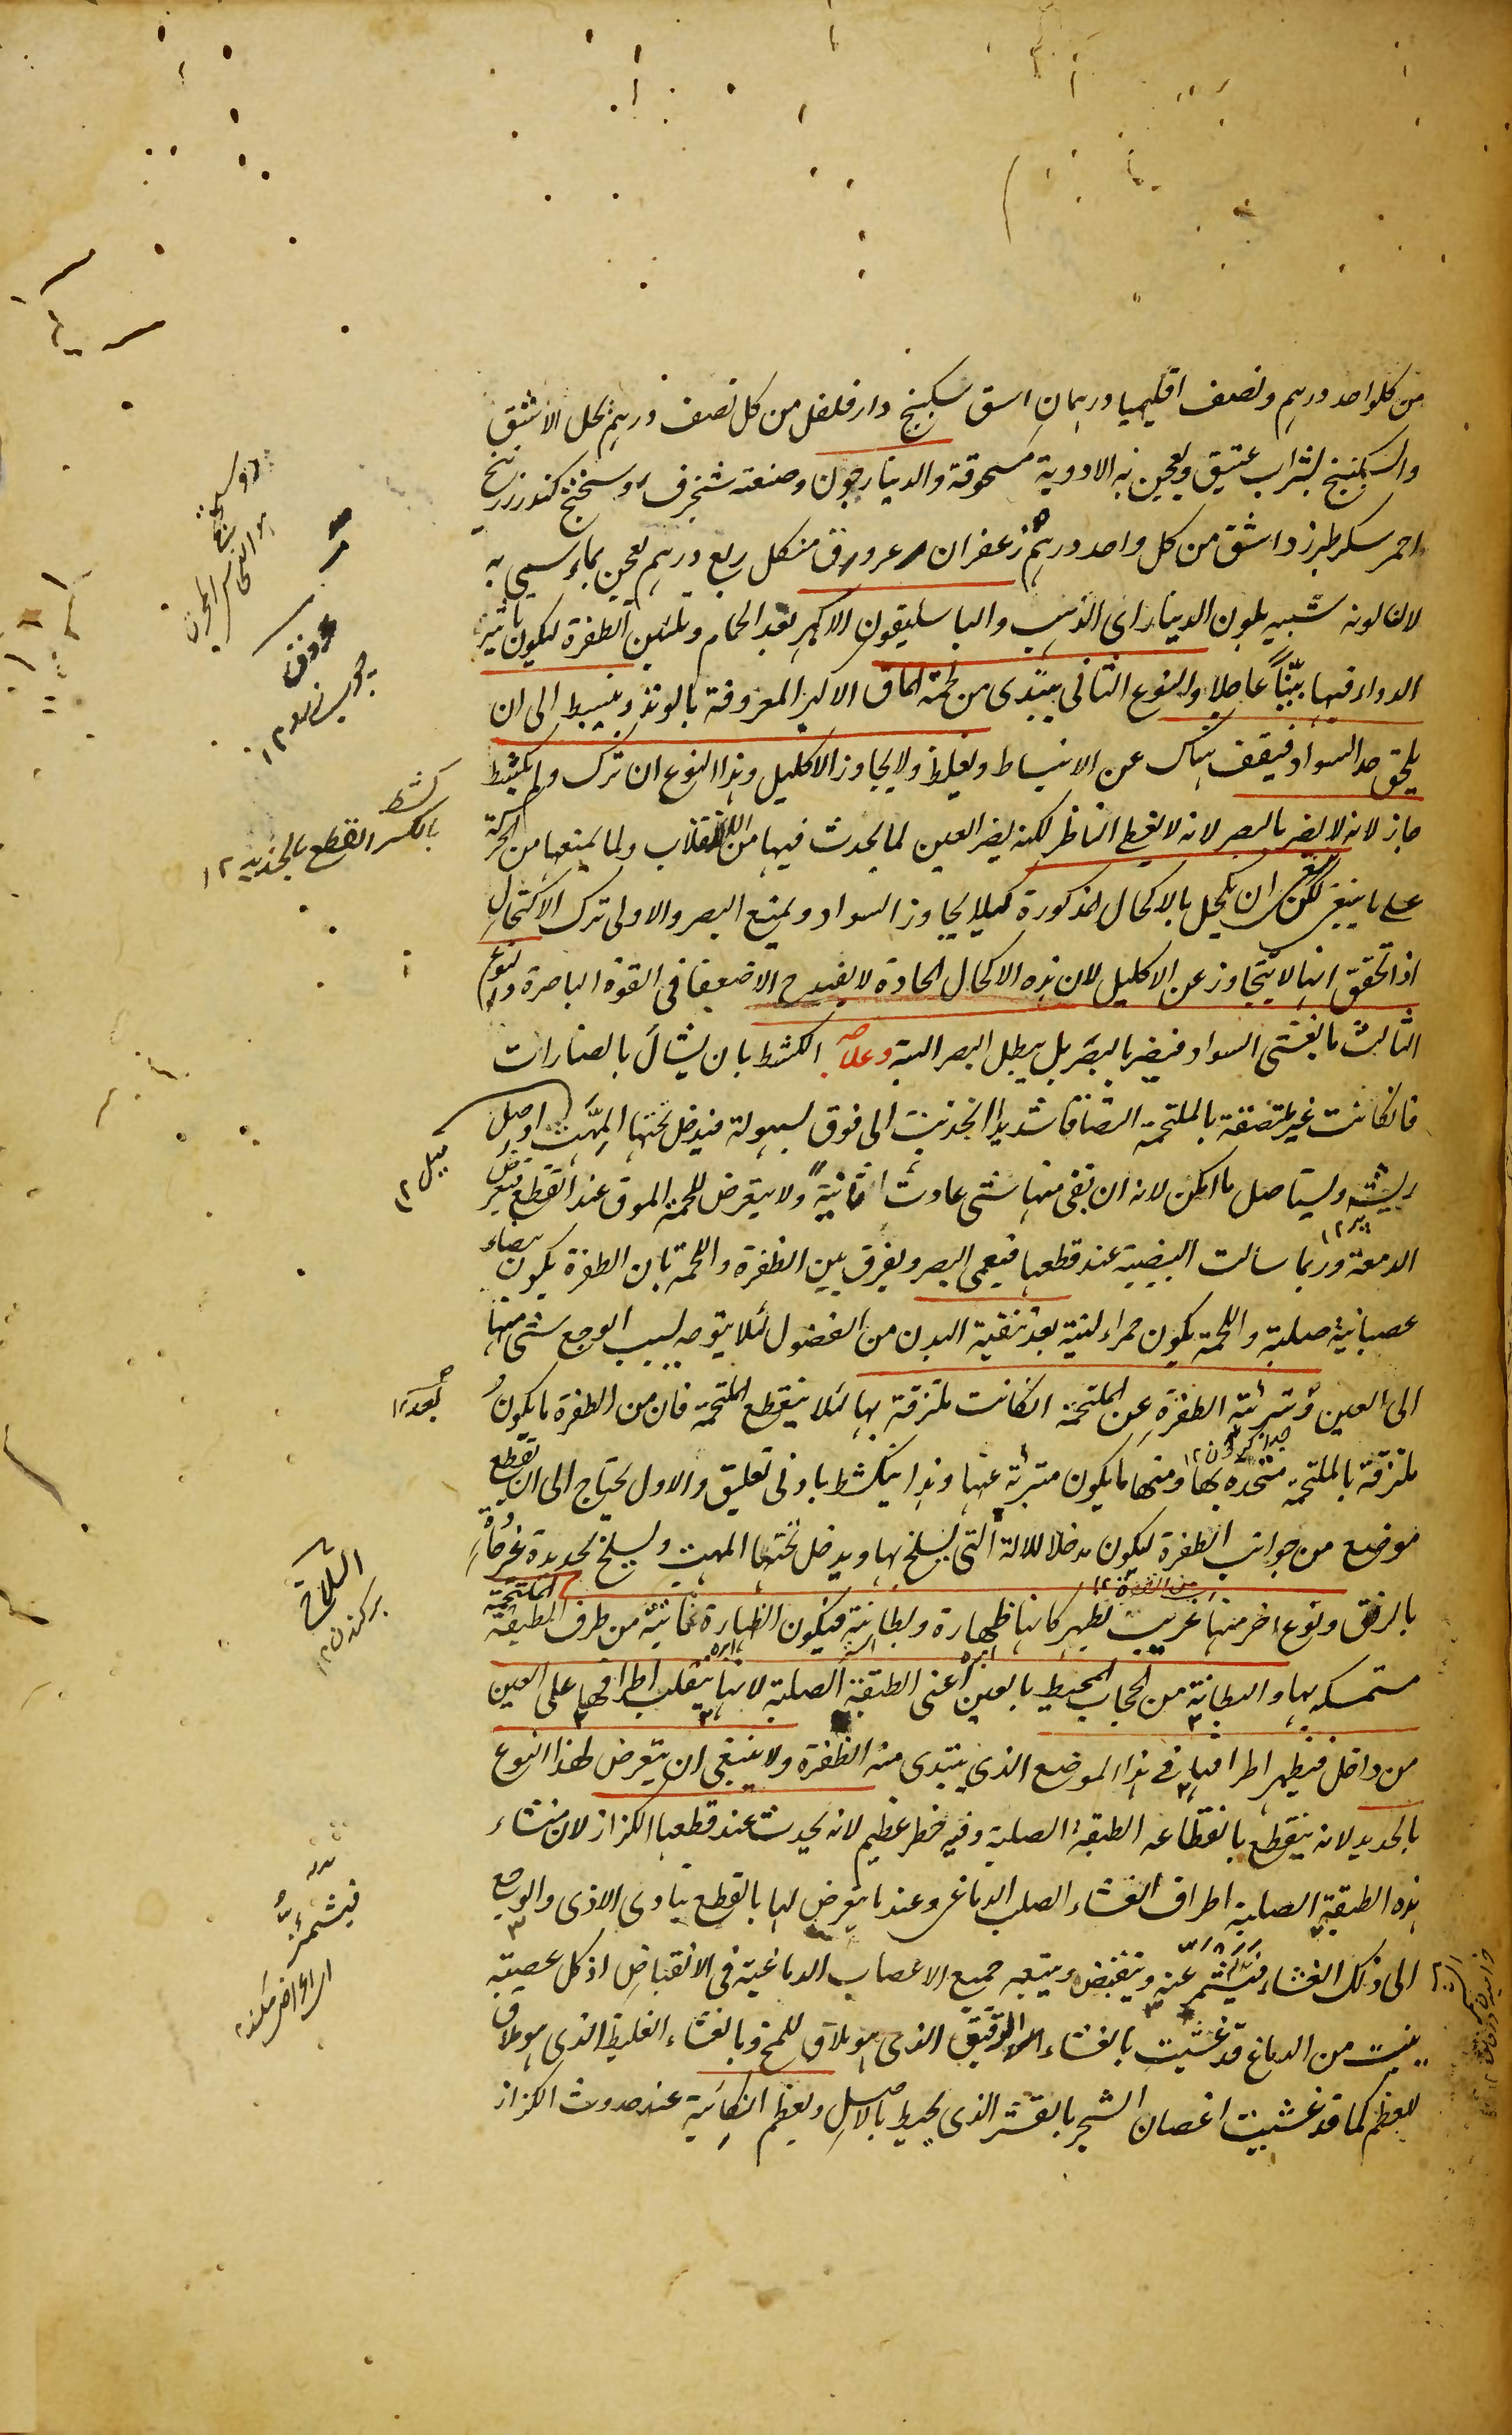 من كلواحد درهم ونصف اقليميا درهمان اسق سكبينج دارفلفل من كل نصف درهم يحل الاشق
والسكبينج بشراب عتيق ويعجن به الادوية مسحوقة والدينارجون وصنعته شنجرف روسختج كندر زرنيخ
احمر سكر طبرزد اشق من كل واحد درهم زعفران عروق منكل ربع درهم يعجن بماء سمى به
لان لونه شبيه بلون الدينار اى الذهب والباسليقون الاكبر بعد الحمام وتليين الظفرة ليكون تاثير
الدواء فيها بيّناً عاجلا والنوع الثانى يبتدى من لحمة الماق الاكبر المعروفة بالوتد وينبسط الى ان
يلحق حد السواد فيقف هناك عن الانبساط ويغلظ ولا يجاوز الاكليل وهذا النوع ان ترك ولم يكشط
جاز لانه لا يضر بالبصر لانه لا يغطى الناظر لكنه يضر العين لما يحدث فيها من الانقلاب ولما يمنعها من الحركة
على ما ينبغى لكن ينبغى ان يكحل بالاكحال المذكورة كيلا يجاوز السواد ويمنع البصر والاولى ترك الاكتحال
اذا تحقق انها لا يتجاوز عن الاكليل لان هذه الاكحال الحادة لا يفيد ح الا ضعفا فى القوة الباصرة والنوع
الثالث ما يغشى السواد فيضر بالبصر بل يبطل البصر البتة وعلاجه الكشط بان يشال بالصنارات
فانكانت غير ملتصقة بالملتحمة التصاقا شديدا انجذبت الى فوق بسهولة فيدخل تحتها المهت او اصل
ريشة ويستاصل ما امكن لانه ان بقى منها شئ عادت ثانية ولا يتعرض للحمة الموق عند القطع فيعرض
الدمعة وربما سالت البيضية عند قطعها فيعمى البصر ويفرق بين الظفرة واللحمة بان الظفرة يكون بيضاء
عصبانية صلبة واللحمة يكون حمراء لينة بعد تنقية البدن من الفضول لئلا يتوجه بسبب الوجع شئ منها
الى العين وتبرئة الظفرة عن الملتحمة انكانت ملتزقة بها لئلا ينقطع الملتحمة فان من الظفرة ما يكون
ملتزقة بالملتحمة متحدة بها ومنها ما يكون متبرئة عنها وهذا ينكشط بادنى تعليق والاول يحتاج الى ان يقطع
موضع من جوانب الظفرة ليكون مدخلا للالة التى يسلخ بها ويدخل تحتها المهت ويسلخ بحديدة غير حادة
بالرفق ونوع اخر منها غريب يظهر كانها ظهارة وبطانية فيكون الظهارة نماتية من طرف الطبقة الملتحمة
مستمسكه بها والبطانية من الحجاب المحيط بالعين اعنى الطبقة الصلبة لانها ينقلب اطرافها على العين
من داخل فيظهر اطرافها فى هذا الموضع الذى يبتدى منه الظفرة ولا ينبغى ان يتعرض لهذا النوع
بالحديد لانه ينقطع بانقطاعه الطبقة الصلبة وفيه خطر عظيم لانه يحدث عند قطعها الكزاز لان منشاء
هذه الطبقة الصلبة اطراف الغشاء الصلب الدماغى وعند ما يتعرض لها بالقطع يتادى الاذى والوجع
الى ذلك الغشاء فيشمئز عنه وينقبض ويتبعه جميع الاعصاب الدماغية فى الانقباض اذ كل عصبة
ينبت من الدماغ قد غشيت بالغشاء الرقيق الذى هو ملاق للمخ وبالغشاء الغليظ الذى هو ملاق
للعظم كما قد غشيت اغصان الشجر بالقشر الذى يحيط بالاصل ويعظم النكائية عند حدوث الكزاز
عروق
كشط
بالكسر القطع بالجذبه ١٢
ميل ١٢
جدا كردن ١٢
بركندن ١٢
فيشمئز